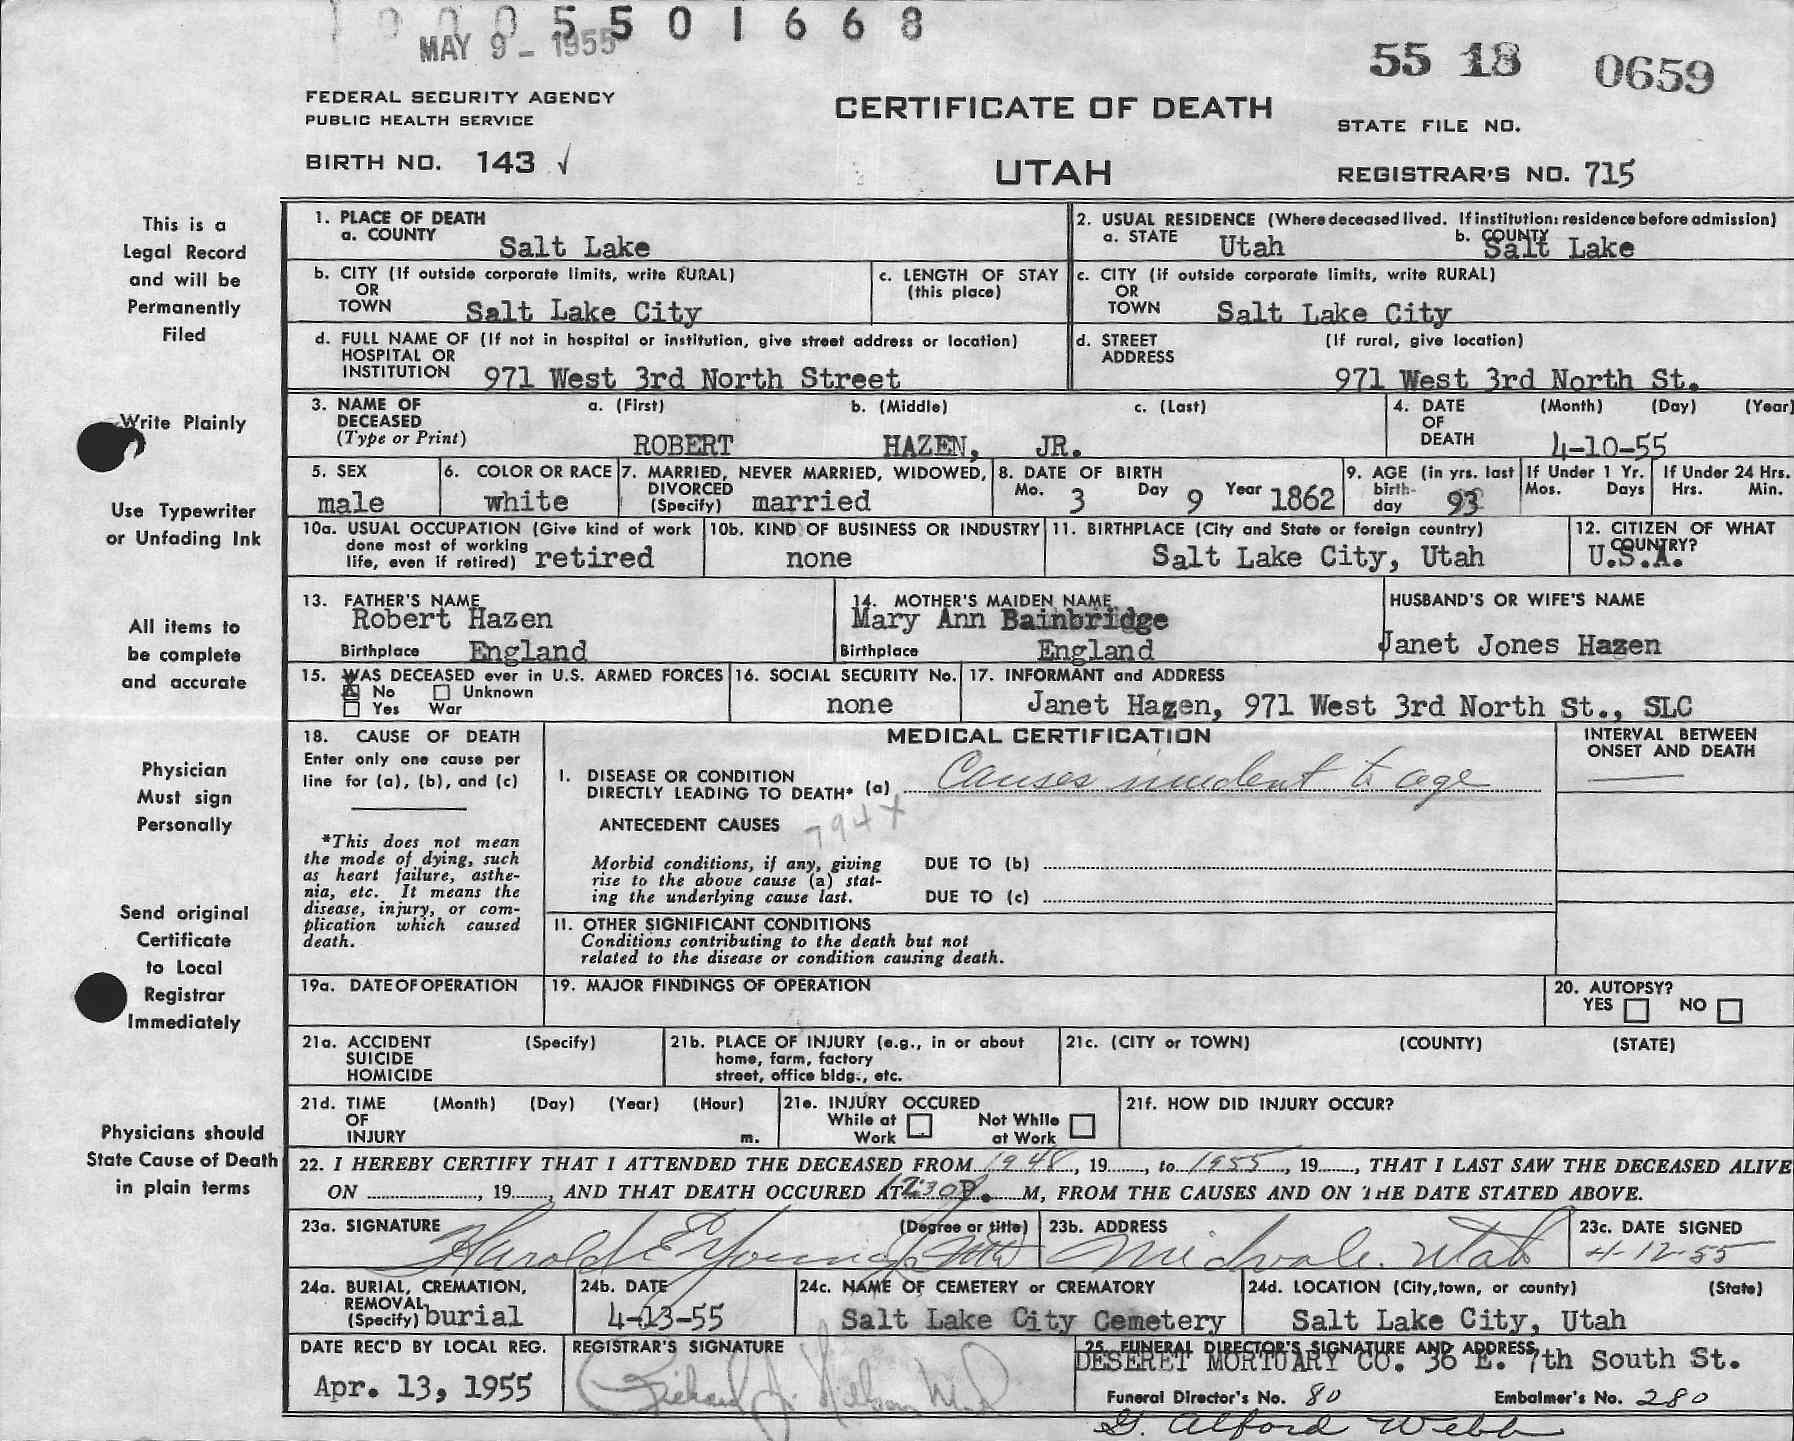 5 5 0 1 6 6 8
MAY 9 - 1955
55 18 0659
FEDERAL SECURITY AGENCY
PUBLIC HEALTH SERVICE
CERTIFICATE OF DEATH
STATE FILE NO.
BIRTH NO. 143 √
UTAH
REGISTRAR'S NO. 715
This is a
Legal Record
and will be
Permanently
Filed
Write Plainly
Use Typewriter
or Unfading Ink
All items to
be complete
and accurate
Physician
Must sign
Personally
Send original
Certificate
to Local
Registrar
Immediately
Physicians should
State Cause of Death
in plain terms
1. PLACE OF DEATH
a. COUNTY Salt Lake
2. USUAL RESIDENCE (Where deceased lived. If institution: residence before admission)
a. STATE Utah b. COUNTY Salt Lake
b. CITY (If outside corporate limits, write RURAL)
OR
TOWN Salt Lake City
c. LENGTH OF STAY
(this place)
c. CITY (if outside corporate limits, write RURAL)
OR
TOWN Salt Lake City
d. FULL NAME OF (If not in hospital or institution, give street address or location)
HOSPITAL OR
INSTITUTION 971 West 3rd North Street
d. STREET (If rural, give location)
ADDRESS
971 West 3rd North St.
3. NAME OF a. (First) b. (Middle) c. (Last)
DECEASED
(Type or Print) ROBERT HAZEN, JR.
4. DATE (Month) (Day) (Year)
OF
DEATH 4-10-55
5. SEX
male
6. COLOR OR RACE
white
7. MARRIED, NEVER MARRIED, WIDOWED,
DIVORCED
(Specify) married
8. DATE OF BIRTH
Mo. 3 Day 9 Year 1862
9. AGE (in yrs. last
birth-
day 93
If Under 1 Yr.
Mos. Days
If Under 24 Hrs.
Hrs. Min.
10a. USUAL OCCUPATION (Give kind of work
done most of working
life, even if retired) retired
10b. KIND OF BUSINESS OR INDUSTRY
none
11. BIRTHPLACE (City and State or foreign country)
Salt Lake City, Utah
12. CITIZEN OF WHAT
COUNTRY?
U.S.A.
13. FATHER'S NAME
Robert Hazen
Birthplace England
14. MOTHER'S MAIDEN NAME
Mary Ann Bainbridge
Birthplace England
HUSBAND'S OR WIFE'S NAME
Janet Jones Hazen
15. WAS DECEASED ever in U.S. ARMED FORCES
No Unknown
Yes War
16. SOCIAL SECURITY No.
none
17. INFORMANT and ADDRESS
Janet Hazen, 971 West 3rd North St., SLC
18. CAUSE OF DEATH
Enter only one cause per
line for (a), (b), and (c)
*This does not mean
the mode of dying, such
as heart failure, asthe-
nia, etc. It means the
disease, injury, or com-
plication which caused
death.
MEDICAL CERTIFICATION
INTERVAL BETWEEN
ONSET AND DEATH
I. DISEASE OR CONDITION
DIRECTLY LEADING TO DEATH* (a) Causes incident to age
ANTECEDENT CAUSES 794X
Morbid conditions, if any, giving
rise to the above cause (a) stat-
ing the underlying cause last.
DUE TO (b)
DUE TO (c)
II. OTHER SIGNIFICANT CONDITIONS
Conditions contributing to the death but not
related to the disease or condition causing death.
19a. DATE OF OPERATION
19. MAJOR FINDINGS OF OPERATION
20. AUTOPSY?
YES NO
21a. ACCIDENT (Specify)
SUICIDE
HOMICIDE
21b. PLACE OF INJURY (e.g., in or about
home, farm, factory
street, office bldg., etc.
21c. (CITY or TOWN) (COUNTY) (STATE)
21d. TIME (Month) (Day) (Year) (Hour)
OF
INJURY m.
21e. INJURY OCCURED
While at Work Not While at Work
21f. HOW DID INJURY OCCUR?
22. I HEREBY CERTIFY THAT I ATTENDED THE DECEASED FROM 1948, 19......, to 1955, 19......, THAT I LAST SAW THE DECEASED ALIVE
ON ...................., 19......, AND THAT DEATH OCCURED AT 12:30 P. M, FROM THE CAUSES AND ON THE DATE STATED ABOVE.
23a. SIGNATURE (Degree or title)
Harold E Young
23b. ADDRESS
Midvale, Utah
23c. DATE SIGNED
4-12-55
24a. BURIAL, CREMATION,
REMOVAL
(Specify) burial
24b. DATE
4-13-55
24c. NAME OF CEMETERY or CREMATORY
Salt Lake City Cemetery
24d. LOCATION (City, town, or county) (State)
Salt Lake City, Utah
DATE REC'D BY LOCAL REG.
Apr. 13, 1955
REGISTRAR'S SIGNATURE
Richard J. Nelson M.D.
25. FUNERAL DIRECTOR'S SIGNATURE AND ADDRESS
DESERET MORTUARY CO. 36 E. 7th South St.
Funeral Director's No. 80 Embalmer's No. 280
G. Alford Webb